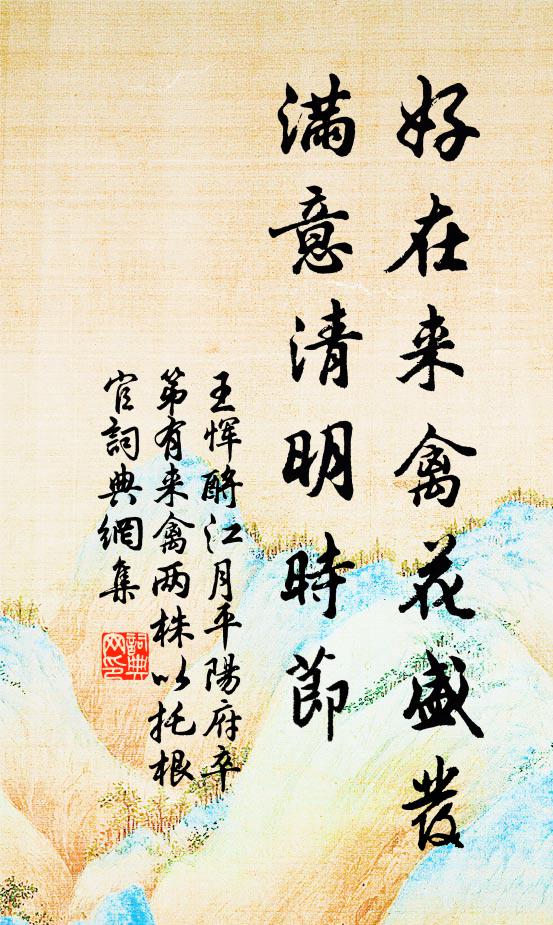 好在来禽花盛發
滿意清明時節
王惲酹江月平陽府卒
第有来禽两株以托根
官詞典網集
詞典網印